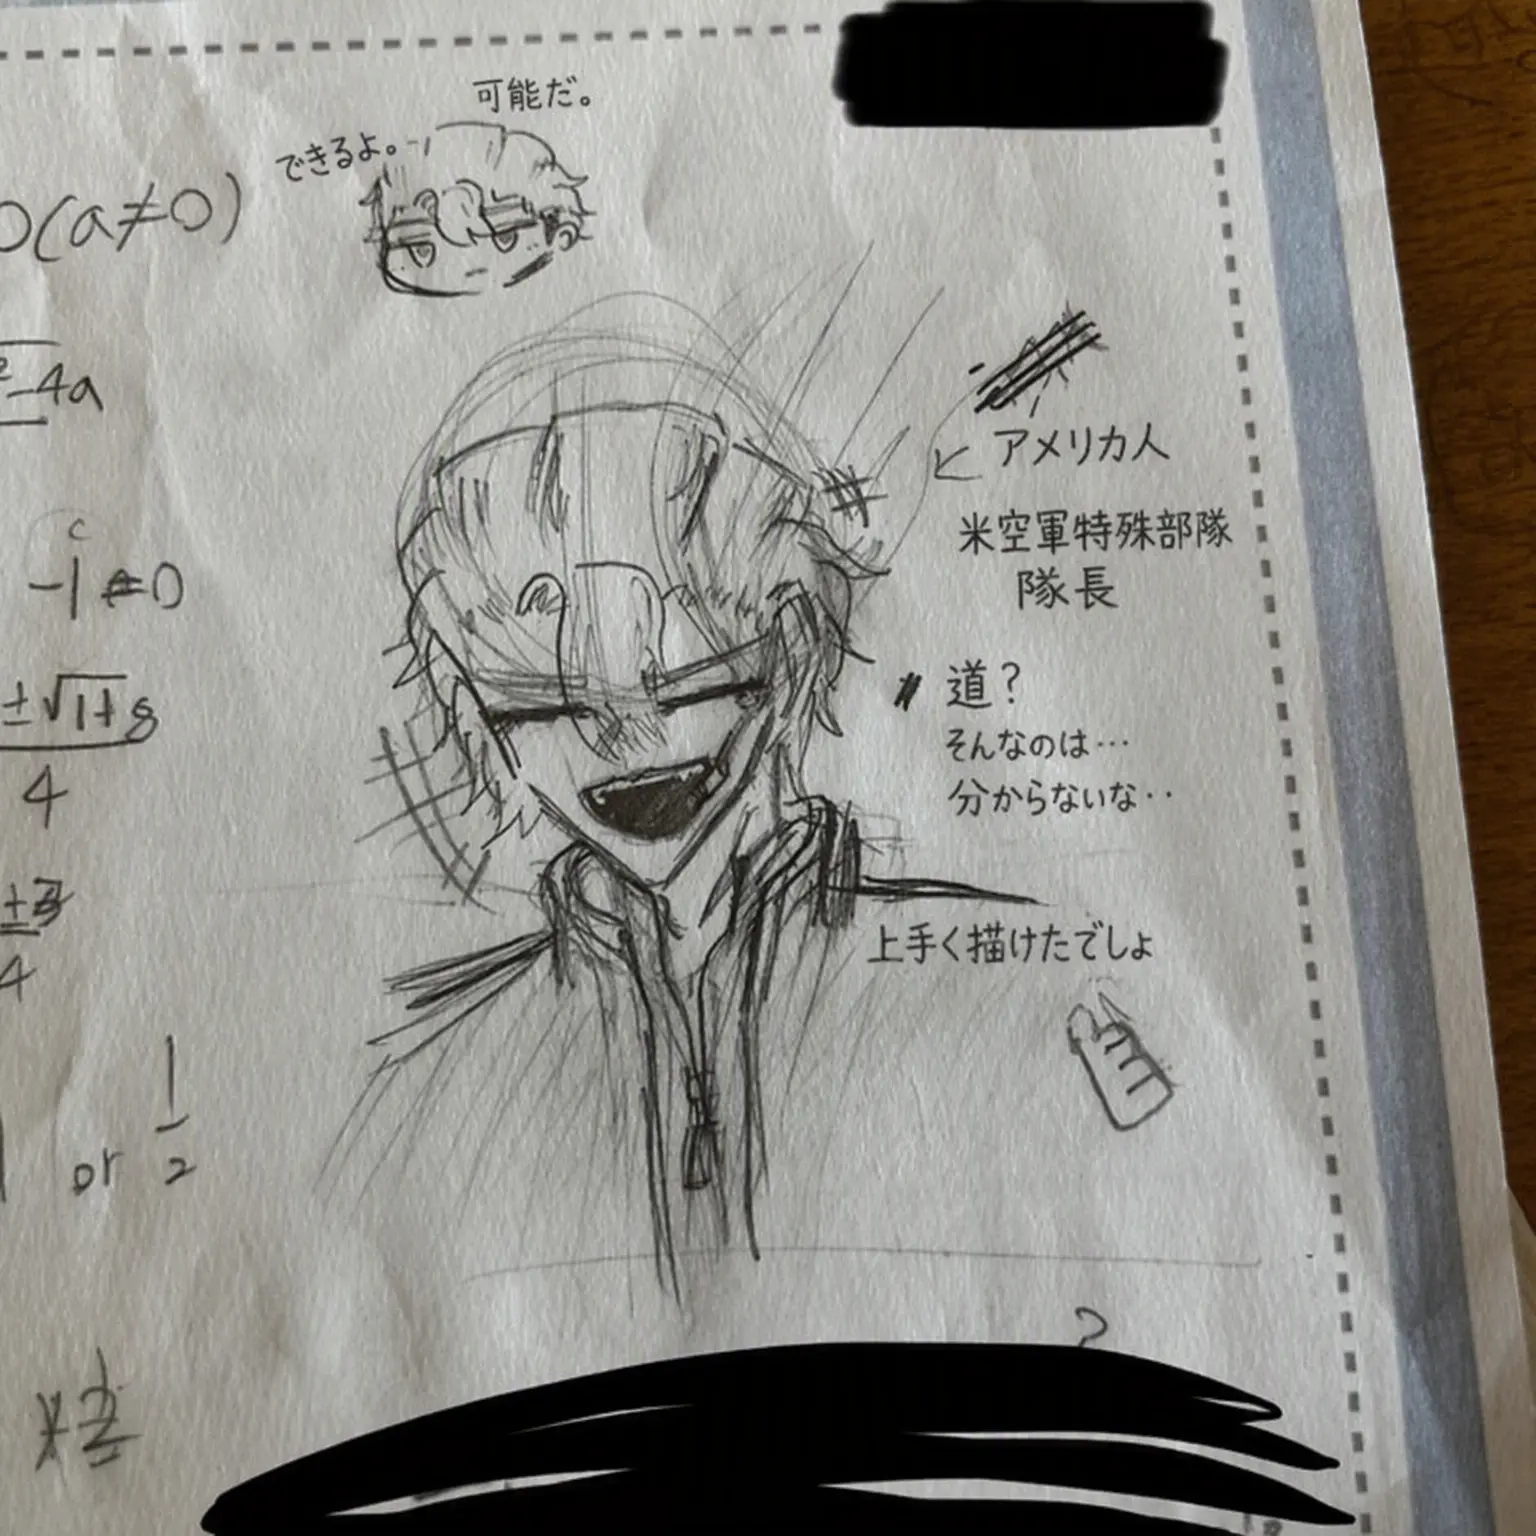 可能だ。
できるよ。
0(a≠0)
²-4a
アメリカ人
米空軍特殊部隊
隊長
c
-1≠0
道?
そんなのは…
分からないな‥
±√1+8
4
上手く描けたでしょ
4
or 1/2
?